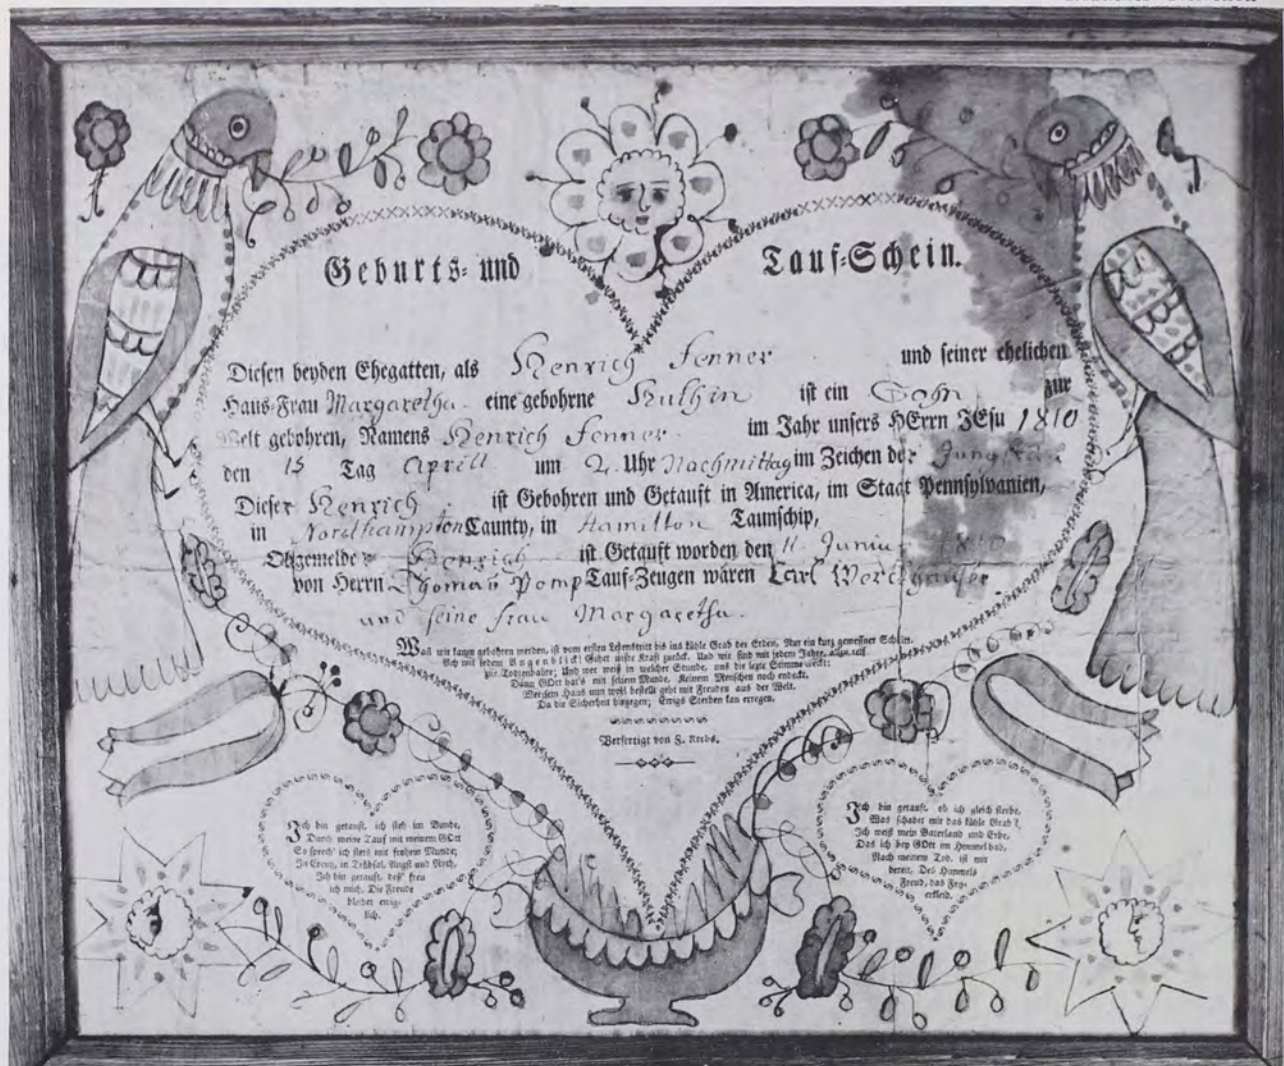 Geburts- und Tauf-Schein.
Diesen beyden Ehegatten, als Henrich Fenner und seiner ehelichen
Haus-Frau Margaretha eine gebohrne ist ein Sohn zur
Welt gebohren, Namens Henrich Fenner im Jahr unsers HErrn JEsu 1810
den 15 Tag Aprill um 2. Uhr Nachmittag im Zeichen der Jungfrau
Dieser Henrich ist Gebohren und Getauft in America, im Staat Pennsylvanien,
in Northampton Caunty, in Hamilton Taunschip,
Obgemelder Henrich ist Getauft worden den 11. Junius 1810
von Herrn Thomas Pomp Tauf-Zeugen wären Carl
und seine frau Margaretha.
Wañ wir kaum gebohren werden, ist vom ersten Lebenstritt bis ins kühle Grab der Erden, Nur ein kurz gemeßner Schritt.
Ach mit jedem Augenblick! Gehet unsre Kraft zurück. Und wir sind mit jedem Jahre, allzu reif
zur Todtenbahre; Und wer weiß in welcher Stunde, uns die lezte Stimme weckt:
Dann GOtt hat's mit seinem Munde, Keinem Menschen noch endeckt.
Wer sein Haus nun wohl bestellt geht mit Freuden aus der Welt.
Da die Sicherheit hingegen; Ewigs Sterben kan erregen.
Verfertigt von F. Krebs.
Ich bin getauft, ich steh im Bunde,
Durch meine Tauf mit meinem GOtt
So sprech' ich stets mit frohem Munde;
In Creutz, in Trübsal, Angst und Noth,
Ich bin getauft, deß' freu
ich mich, Die Freude
bleibet ewig-
lich.
Ich bin getauft, ob ich gleich sterbe,
Was schadet mir das kühle Grab?
Ich weiß mein Vaterland und Erbe,
Das ich bey GOtt im Himmel hab,
Nach meinem Tod, ist mir
bereit, Des Himmels
Freud, das Fey-
erkleid.